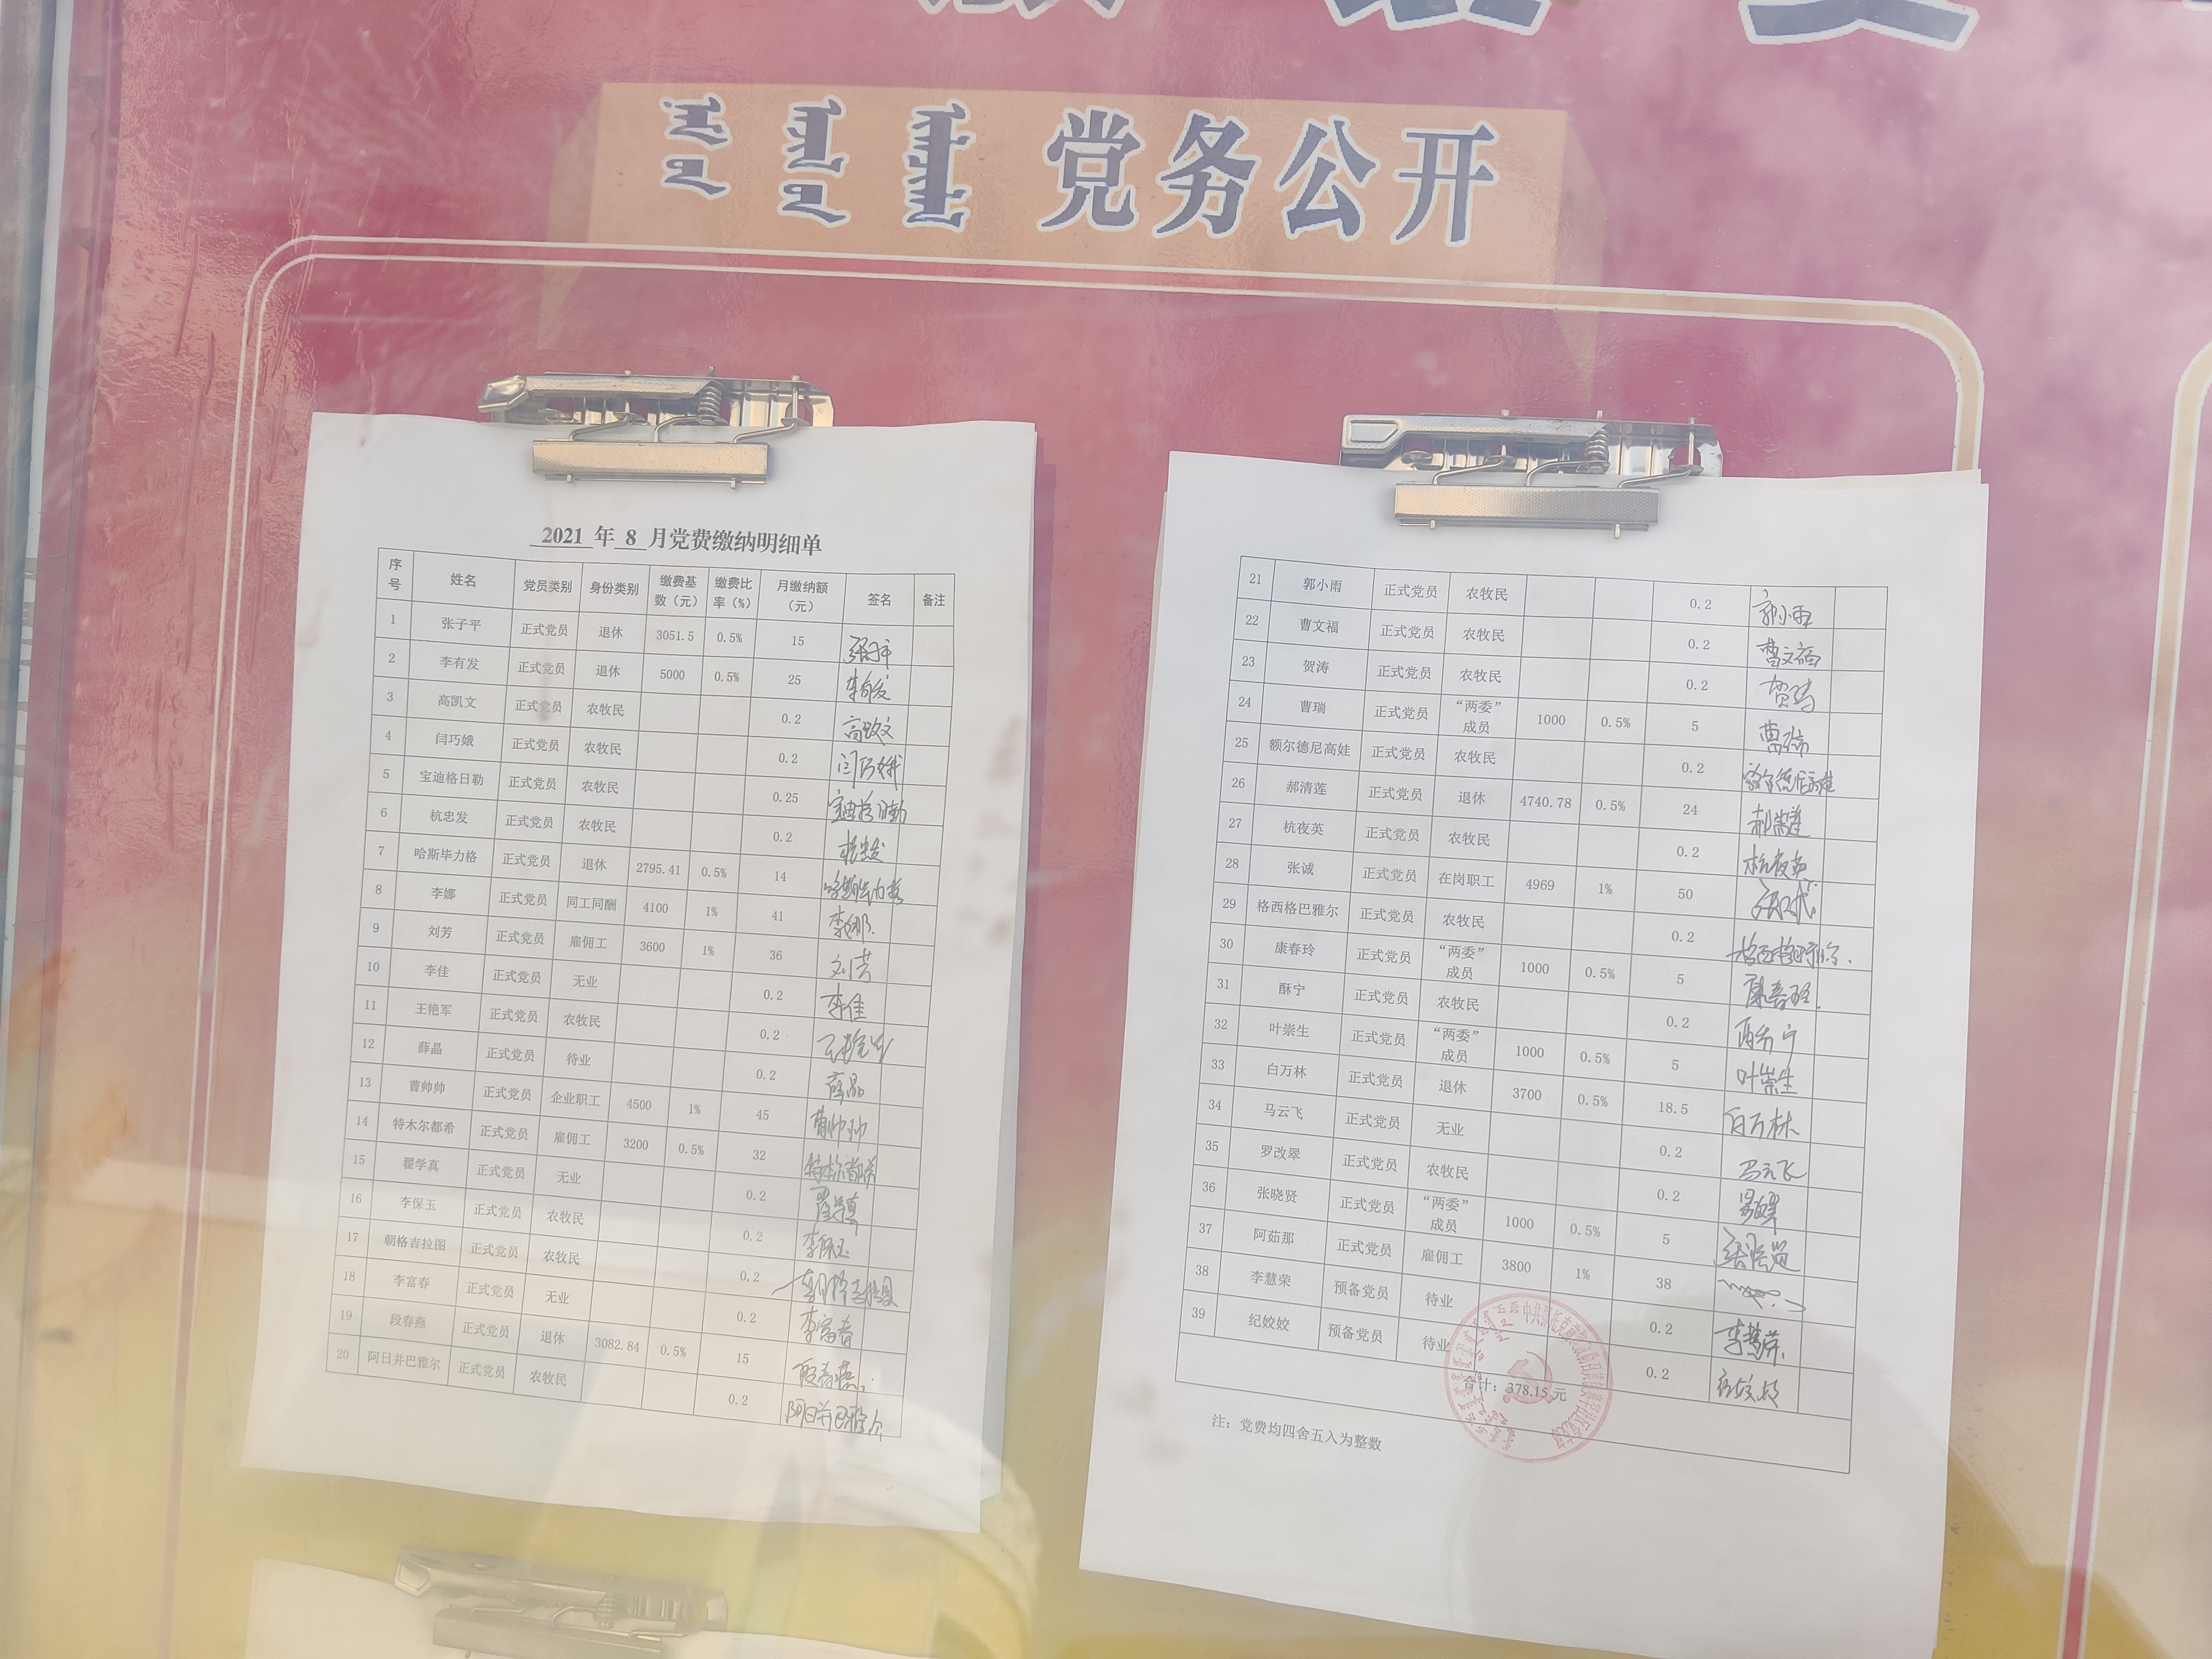 党务公开
2021 年 8 月党费缴纳明细单
序号 姓名 党员类别 身份类别 缴费基数（元） 缴费比率（%） 月缴纳额（元） 签名 备注
1 张子平 正式党员 退休 3051.5 0.5% 15 张子平
2 李有发 正式党员 退休 5000 0.5% 25 李有发
3 高凯文 正式党员 农牧民 0.2 高凯文
4 闫巧娥 正式党员 农牧民 0.2 闫巧娥
5 宝迪格日勒 正式党员 农牧民 0.25 宝迪格日勒
6 杭忠发 正式党员 农牧民 0.2 杭忠发
7 哈斯毕力格 正式党员 退休 2795.41 0.5% 14 哈斯毕力格
8 李娜 正式党员 同工同酬 4100 1% 41 李娜
9 刘芳 正式党员 雇佣工 3600 1% 36 刘芳
10 李佳 正式党员 无业 0.2 李佳
11 王艳军 正式党员 农牧民 0.2 王艳军
12 薛晶 正式党员 待业 0.2 薛晶
13 曹帅帅 正式党员 企业职工 4500 1% 45 曹帅帅
14 特木尔都希 正式党员 雇佣工 3200 0.5% 32 特木尔都希
15 翟学真 正式党员 无业 0.2 翟学真
16 李保玉 正式党员 农牧民 0.2 李保玉
17 朝格吉拉图 正式党员 农牧民 0.2 朝格吉拉图
18 李富春 正式党员 无业 0.2 李富春
19 段春燕 正式党员 退休 3082.84 0.5% 15 段春燕
20 阿日并巴雅尔 正式党员 农牧民 0.2 阿日并巴雅尔
21 郭小雨 正式党员 农牧民 0.2 郭小雨
22 曹文福 正式党员 农牧民 0.2 曹文福
23 贺涛 正式党员 农牧民 0.2 贺涛
24 曹瑞 正式党员 “两委”成员 1000 0.5% 5 曹瑞
25 额尔德尼高娃 正式党员 农牧民 0.2 额尔德尼高娃
26 郝清莲 正式党员 退休 4740.78 0.5% 24 郝清莲
27 杭夜英 正式党员 农牧民 0.2 杭夜英
28 张诚 正式党员 在岗职工 4969 1% 50 张诚
29 格西格巴雅尔 正式党员 农牧民 0.2 格西格巴雅尔
30 康春玲 正式党员 “两委”成员 1000 0.5% 5 康春玲
31 酥宁 正式党员 农牧民 0.2 酥宁
32 叶崇生 正式党员 “两委”成员 1000 0.5% 5 叶崇生
33 白万林 正式党员 退休 3700 0.5% 18.5 白万林
34 马云飞 正式党员 无业 0.2 马云飞
35 罗改翠 正式党员 农牧民 0.2 罗改翠
36 张晓贤 正式党员 “两委”成员 1000 0.5% 5 张晓贤
37 阿茹那 正式党员 雇佣工 3800 1% 38
38 李慧荣 预备党员 待业 0.2 李慧荣
39 纪姣姣 预备党员 待业 0.2 纪姣姣
合计：378.15 元
注：党费均四舍五入为整数